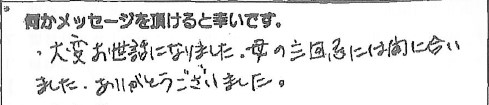 何かメッセージを頂けると幸いです。
・大変お世話になりました。母の三回忌には間に合い
ました。ありがとうございました。